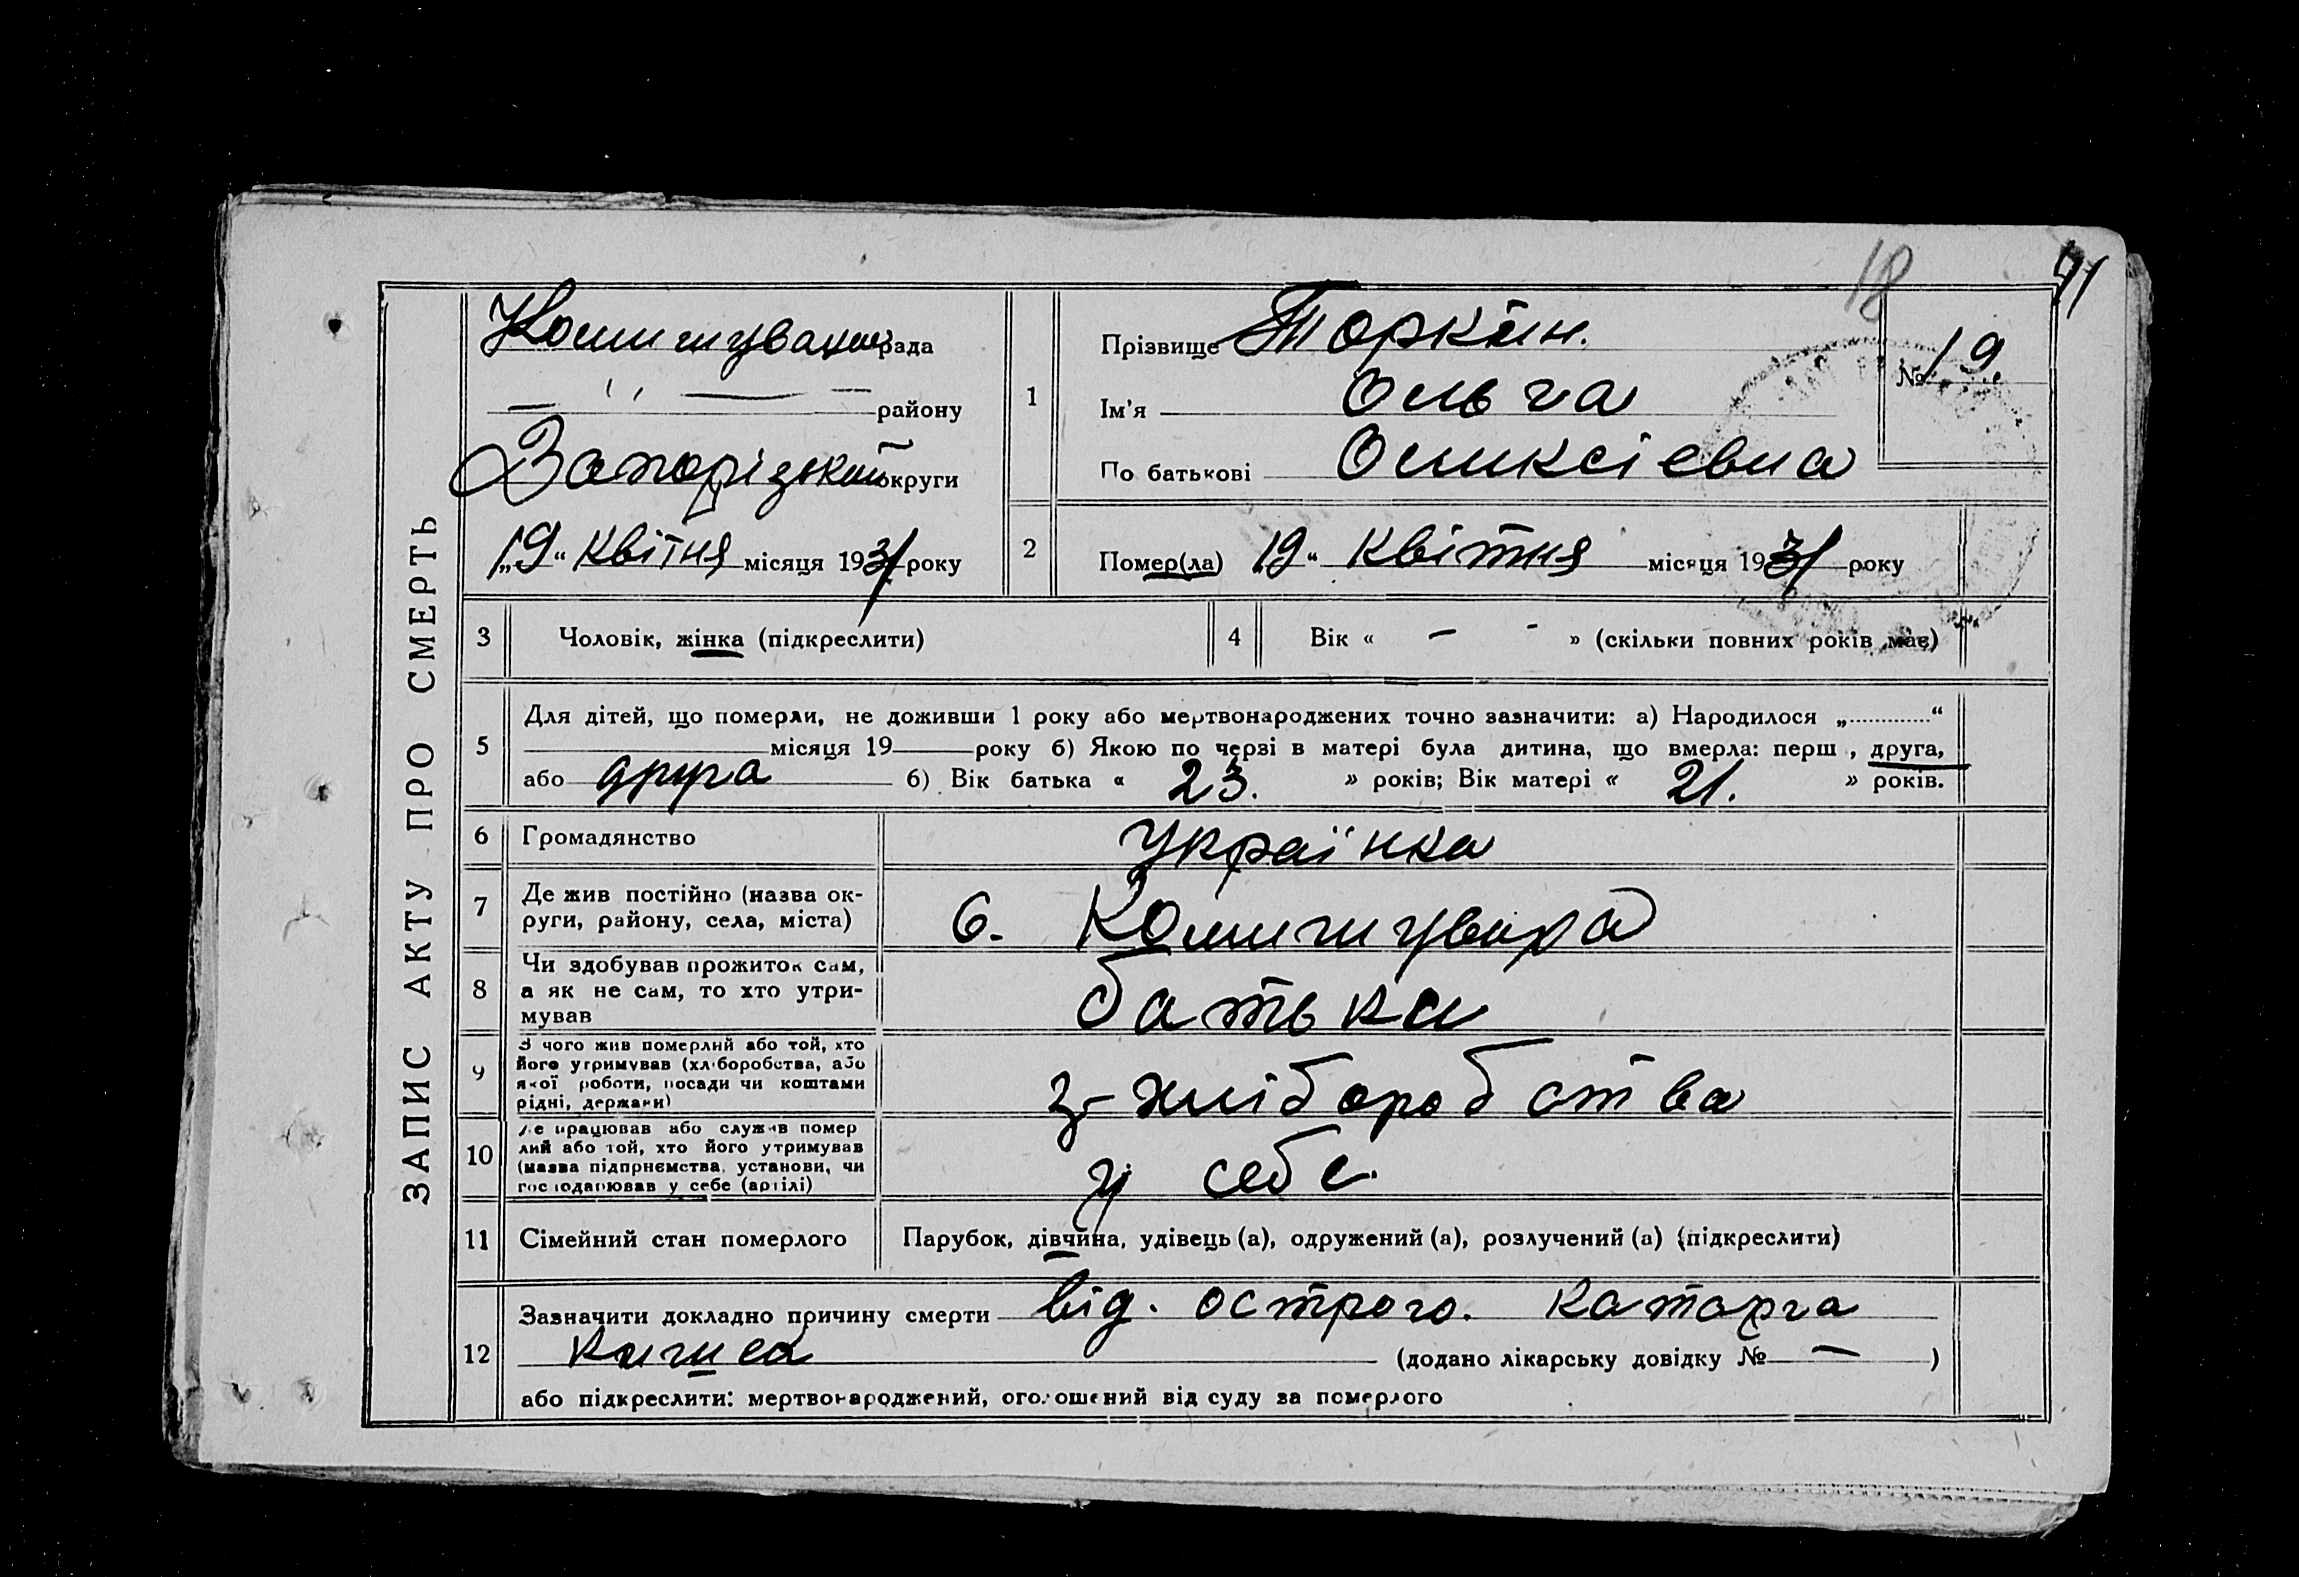 18
71
ЗАПИС АКТУ ПРО СМЕРТЬ
рада
— " — —
району
Запорізької округи
„19“ квітня місяця 1931 року
1
Прізвище Торкін.
Ім'я Ольга
По батькові Оликсієвна
№ 19.
2
Помер(ла) 19“ квітня місяця 1931 року
3
Чоловік, жінка (підкреслити)
4
Вік « — - » (скільки повних років має)
5
Для дітей, що померли, не доживши 1 року або мертвонароджених точно зазначити: а) Народилося „.............“
місяця 19 року б) Якою по черзі в матері була дитина, що вмерла: перш , друга,
або друга б) Вік батька « 23. » років; Вік матері « 21. » років.
6
Громадянство
українка
7
Де жив постійно (назва ок-
руги, району, села, міста)
с. Комишуваха
8
Чи здобував прожиток сам,
а як не сам, то хто утри-
мував
батьки
9
З чого жив померлий або той, хто
його утримував (хліборобства, або
якої роботи, посади чи коштами
рідні, держави)
з хліборобства
10
Де працював або служив помер
лий або той, хто його утримував
(назва підприємства, установи, чи
господарював у себе (артілі)
у себе.
11
Сімейний стан померлого
Парубок, дівчина, удівець (а), одружений (а), розлучений (а) (підкреслити)
12
Зазначити докладно причину смерти від. острого. катарга
(додано лікарську довідку № — )
або підкреслити: мертвонароджений, оголошений від суду за померлого